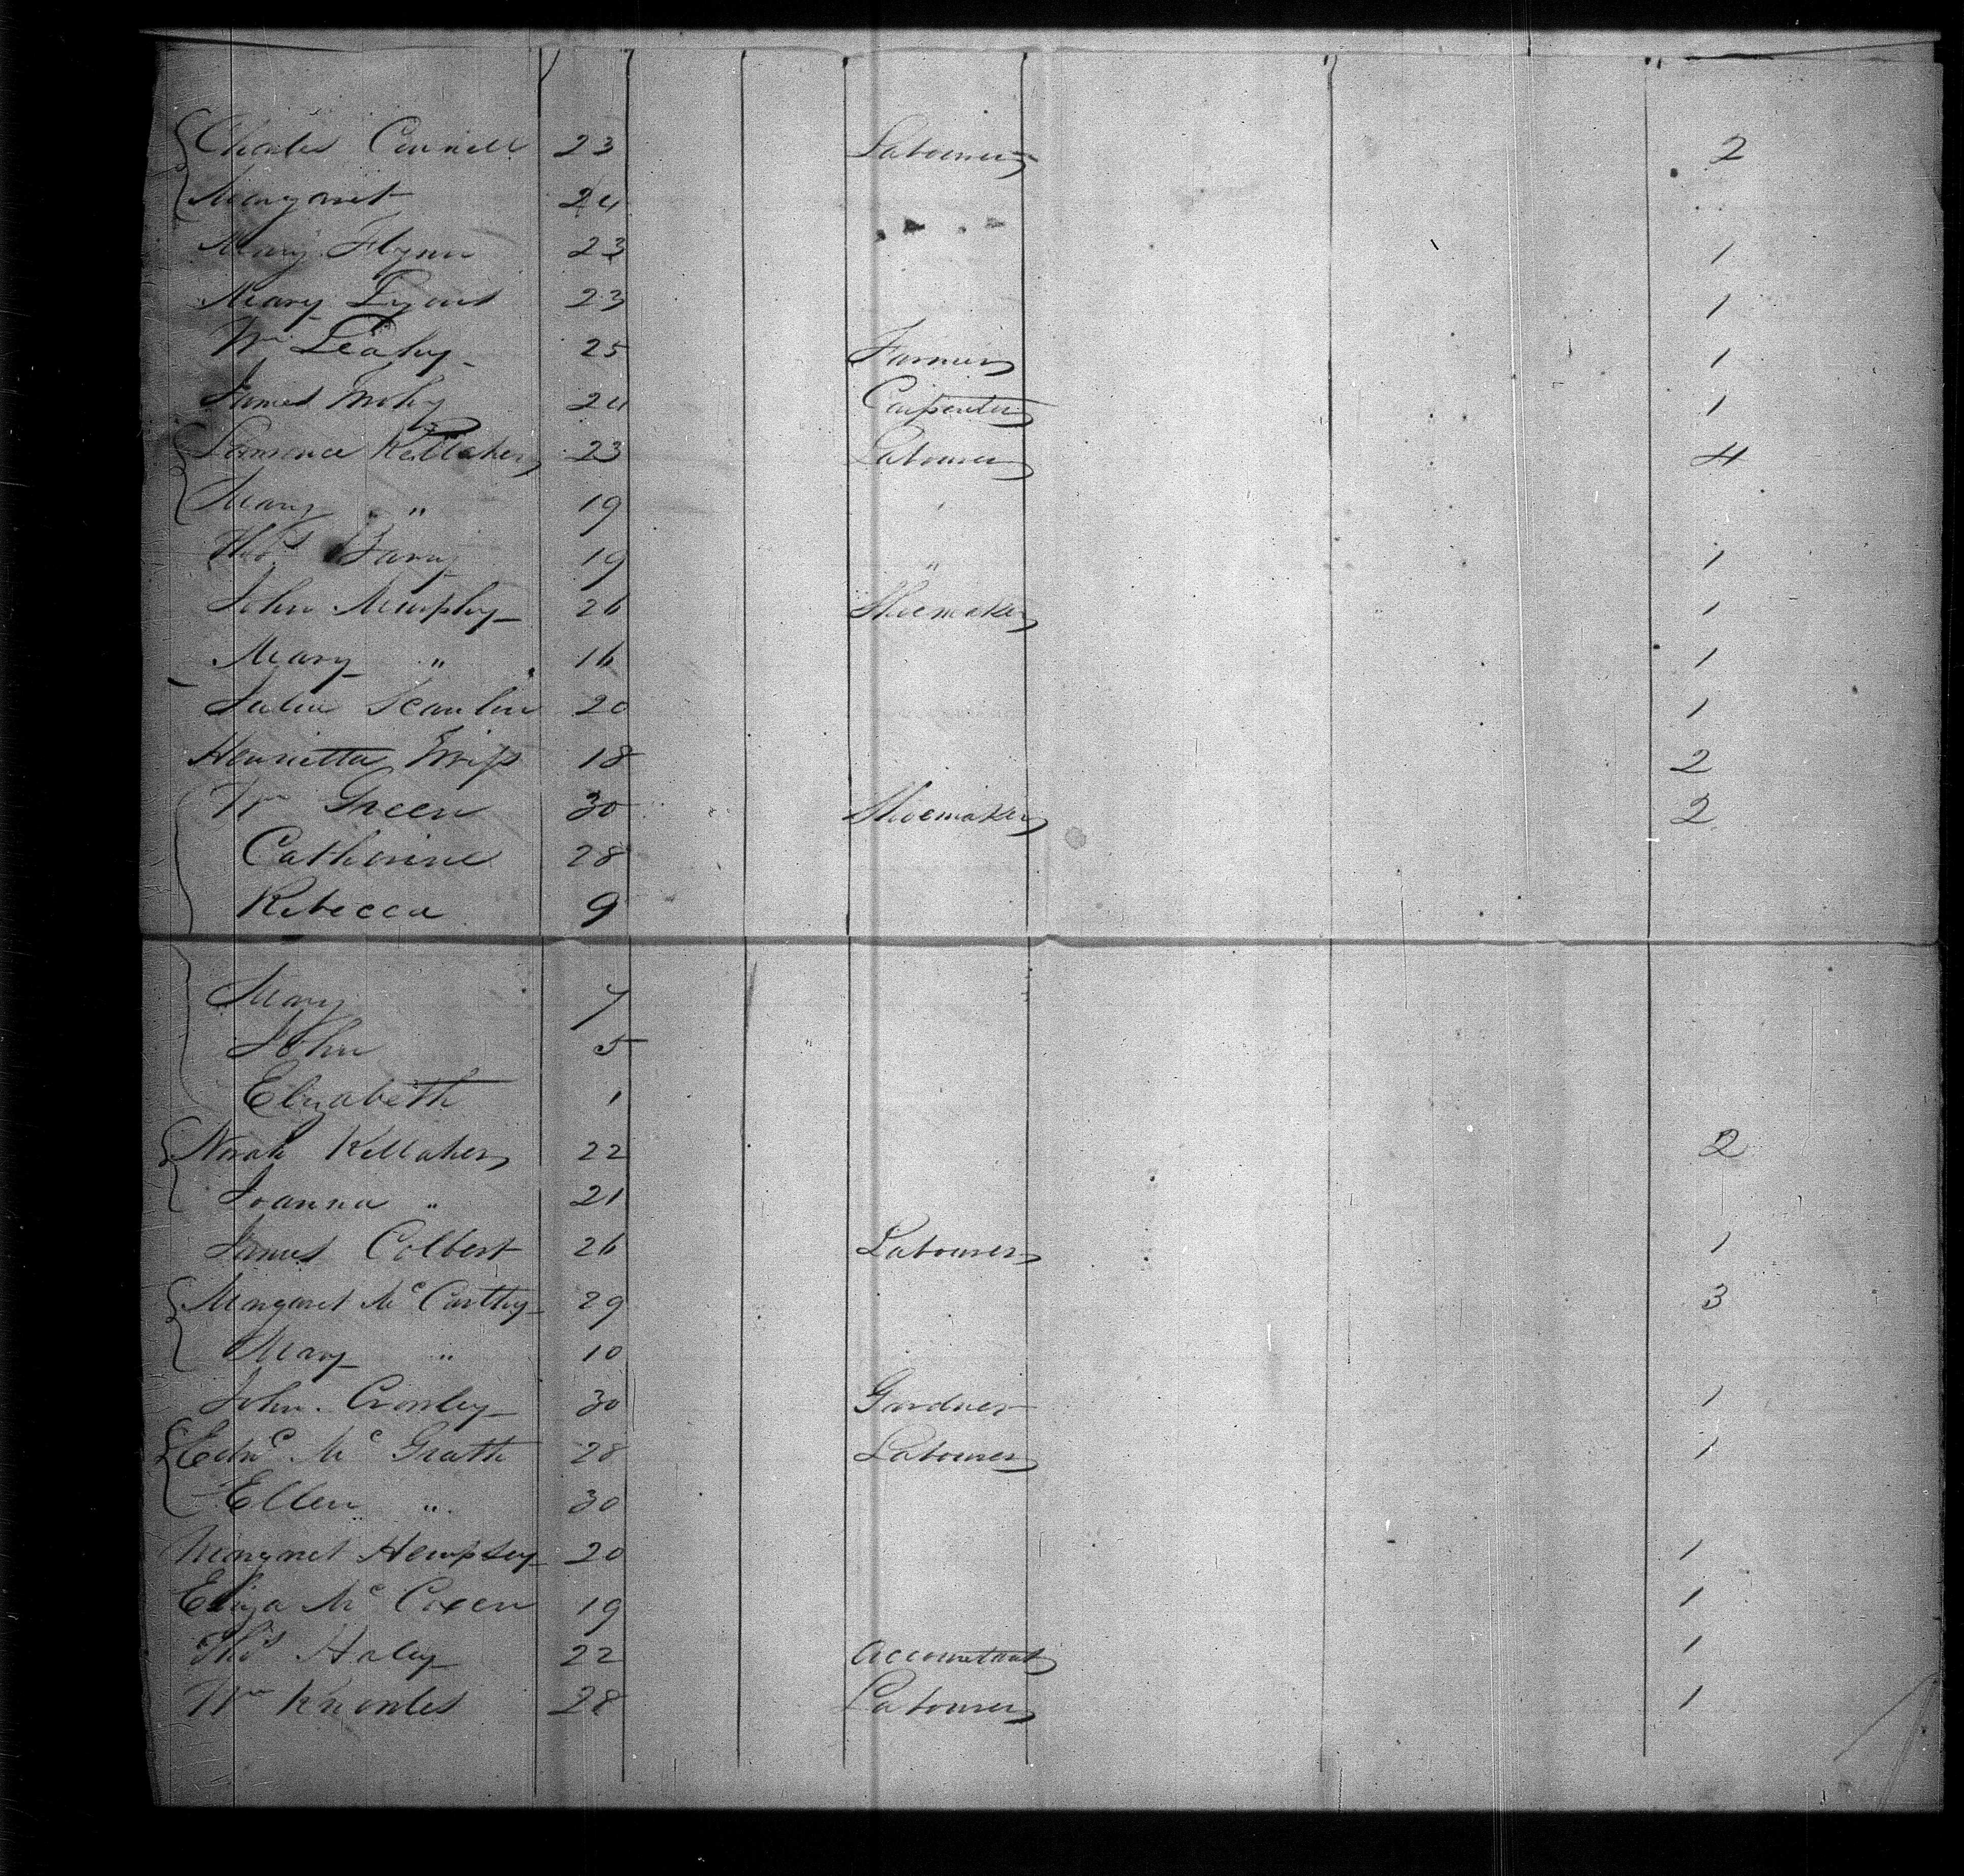 Charles Connell 23 Labourer 2
Margaret 24
Mary Flynn 23 1
Mary Lyons 23 1
Wm Leahy 25 Farmer 1
James 24 Carpenter 1
Lawrence Kellaher 23 Labourer 4
Mary " 19
Thos Barry 19 " 1
John Murphy 26 Shoemaker 1
Mary " 16 1
Julia Scanlin 20 1
Henrietta 18 2
Wm Green 30 Shoemaker 2
Catherine 28
Rebecca 9
Mary 7
John 5
Elizabeth 1
Norah Kellaher 22 2
Joanna " 21
James Colbert 26 Labourer 1
Margaret McCarthy 29 3
Mary " 10
John Crowley 30 Gardner 1
Edwd McGrath 28 Labourer 1
Ellen " 30
Margaret Hempsey 20 1
Eliza Mc 19 1
Thos Haley 22 Accountant 1
Wm Knowles 28 Labourer 1